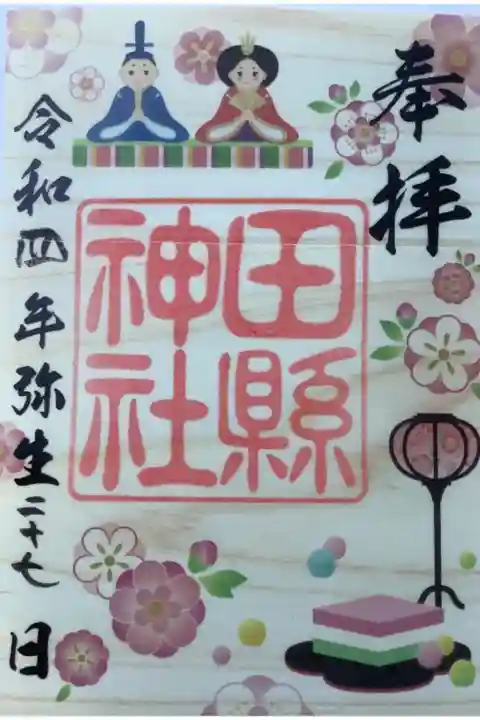 奉拝
田縣
神社
令和四年弥生二十七日